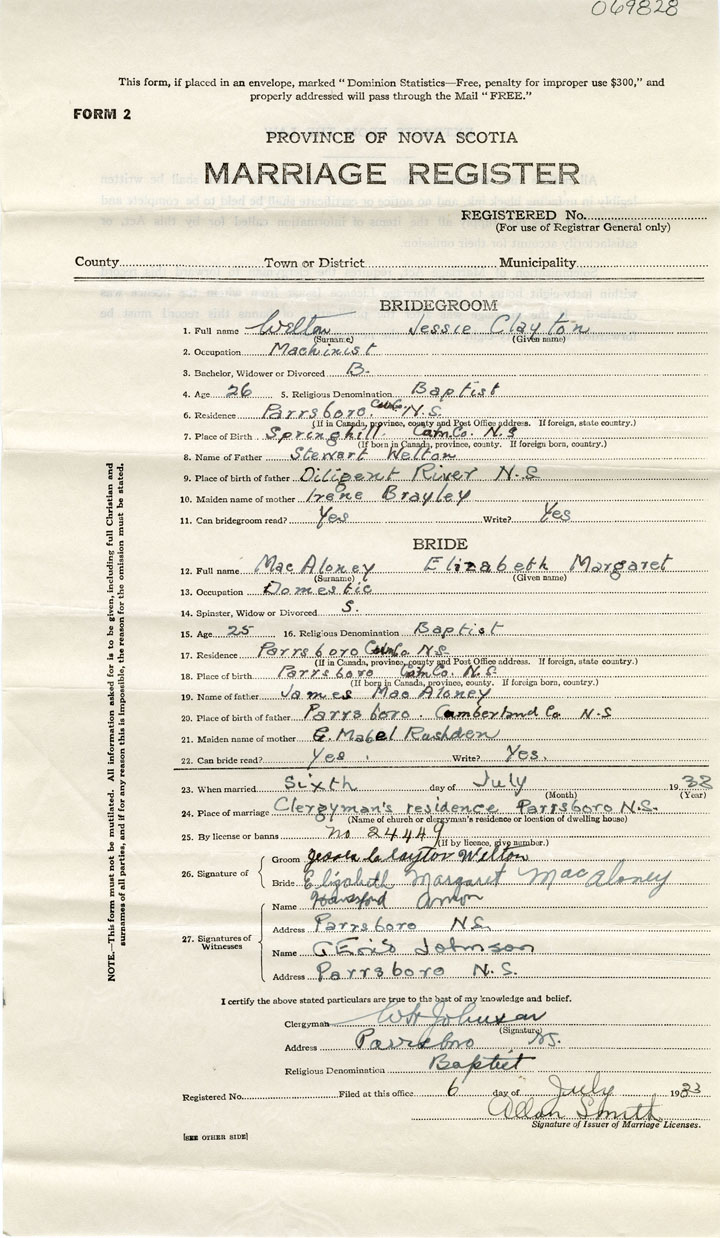 069828
This form, if placed in an envelope, marked "Dominion Statistics—Free, penalty for improper use $300," and
properly addressed will pass through the Mail "FREE."
FORM 2
PROVINCE OF NOVA SCOTIA
MARRIAGE REGISTER
REGISTERED No.
(For use of Registrar General only)
County Town or District Municipality
BRIDEGROOM
1. Full name Welton Jessie Clayton
(Surname) (Given name)
2. Occupation Machinist
3. Bachelor, Widower or Divorced B.
4. Age 26 5. Religious Denomination Baptist
6. Residence Parrsboro. Cum Co N.S.
(If in Canada, province, county and Post Office address. If foreign, state country.)
7. Place of Birth Springhill Cum Co. N.S
(If born in Canada, province, county. If foreign born, country.)
8. Name of Father Stewart Welton
9. Place of birth of father Diligent River N-S
10. Maiden name of mother Irene Brayley
11. Can bridegroom read? Yes Write? Yes
BRIDE
12. Full name MacAloney Elizabeth Margaret
(Surname) (Given name)
13. Occupation Domestic
14. Spinster, Widow or Divorced S.
15. Age 25 16. Religious Denomination Baptist
17. Residence Parrsboro Cum Co N.S.
(If in Canada, province, county and Post Office address. If foreign, state country.)
18. Place of birth Parrsboro Cum Co. N.S.
(If born in Canada, province, county. If foreign born, country.)
19. Name of father James MacAloney
20. Place of birth of father Parrsboro Cumberland Co N-S
21. Maiden name of mother G. Mabel Rushden
22. Can bride read? Yes. Write? Yes.
23. When married Sixth day of July 1933
(Month) (Year)
24. Place of marriage Clergyman's residence Parrsboro N.S.
(Name of church or clergyman's residence or location of dwelling house)
25. By license or banns no 24449
(If by licence, give number.)
26. Signature of
Groom Jessie Clayton Welton
Bride Elizabeth Margaret MacAloney
27. Signatures of Witnesses
Name Amon
Address Parrsboro NS.
Name Johnson
Address Parrsboro N.S.
I certify the above stated particulars are true to the best of my knowledge and belief.
Clergyman Johnson
(Signature)
Address Parrsboro NS.
Religious Denomination Baptist
Registered No. Filed at this office 6 day of July 1933
Allan Smith
Signature of Issuer of Marriage Licenses.
[SEE OTHER SIDE]
NOTE.—This form must not be mutilated. All information asked for is to be given, including full Christian and
surnames of all parties, and if for any reason this is impossible, the reason for the omission must be stated.